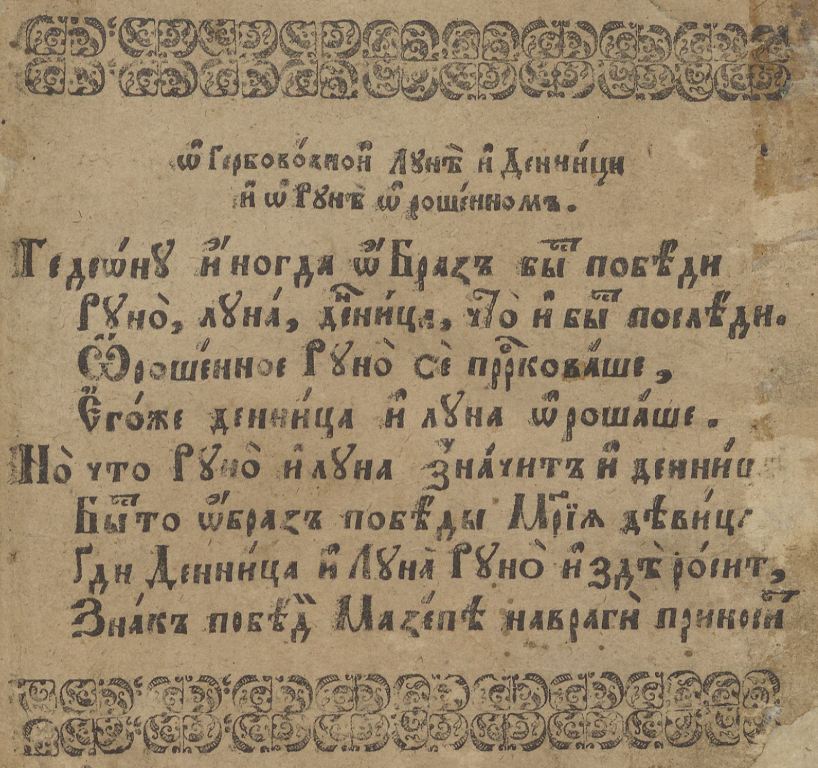 ѡ҆ Гербово́вной Лунѣ̀ и҆ Денни́ци
и҆ ѡ҆ Рунѣ̀ ѡ҆роше́нномъ.
Гедеѡ́ну и҆́ногда ѡ҆́Бразъ бы̑ побѣ́ди
Руно̀, луна́, дн҃ени́ца, что̀ и҆ бы̑ послѣ́ди.
Ѡ҆роше́нное Руно̀ сѐ пррⷪ҇кова́ше,
Е҆го́же денни́ца и҆ луна ѡ҆роша́ше.
Но̀ что Руно̀ и҆ луна зна́читъ и҆ денни́ца
Бы̑то ѡ҆́бразъ побѣ́ды Мр҃їѧ дѣви́ца
Гди Денни́ца и҆ Луна̀ Руно̀ и҆ здѣ̀ ро́сит,
Зна́къ побѣ́дⷣ Мазе́пѣ навраги̑ приноси́ᵀ